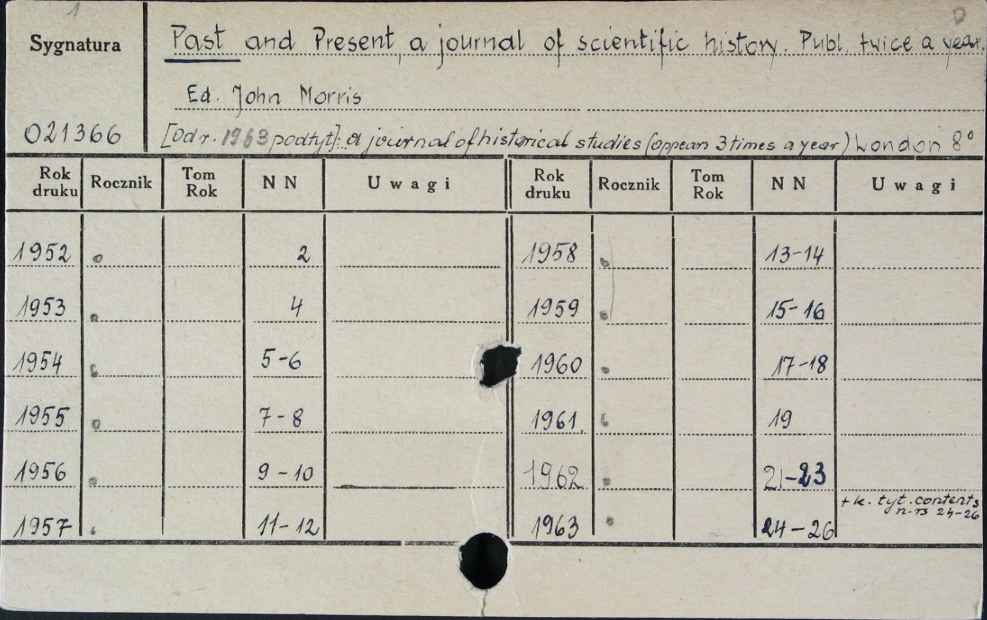 1
Sygnatura
Past and Present, a journal of scientific history. Publ. twice a year.
Ed. John Morris
021366
[Od r. 1963 podtyt]: a journal of historical studies (appears 3 times a year) London 8°
Rok druku Rocznik Tom Rok NN Uwagi Rok druku Rocznik Tom Rok NN Uwagi
1952 2 1958 13-14
1953 4 1959 15-16
1954 5-6 1960 17-18
1955 7-8 1961 19
1956 9-10 1962 21-23
1957 11-12 1963 24-26 + k. tyt. contents
n-rs 24-26